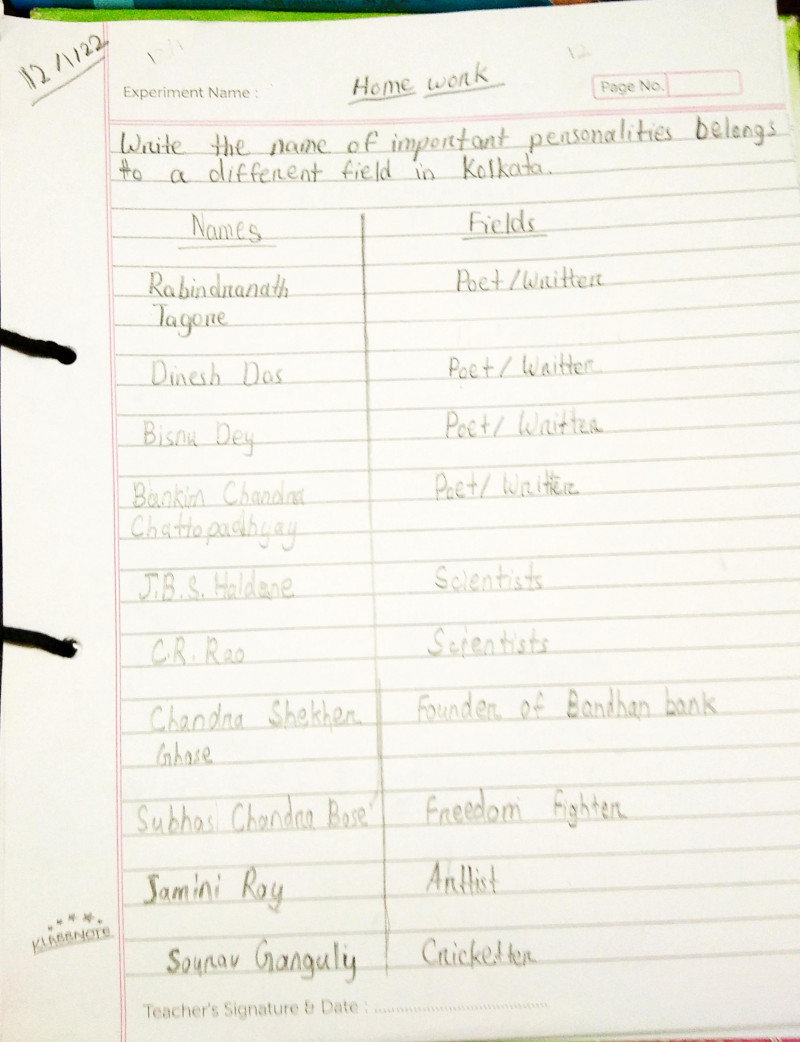 12/1/22
Experiment Name :
Home work
Page No.
Write the name of important personalities belongs
to a different field in Kolkata.
Names
Fields
Rabindranath
Poet/Writter
Tagore
Dinesh Das
Poet/Writter
Bisnu Dey
Poet/Writter
Bankim Chandra
Poet/Writter
Chattopadhyay
J.B.S. Haldane
Scientists
C.R. Rao
Scientists
Chandra Shekher
Founder of Bandhan bank
Ghose
Subhas Chandra Bose
Freedom fighter
Jamini Roy
Arttist
Sourav Ganguly
Cricketter
KLASSNOTE
Teacher's Signature & Date :